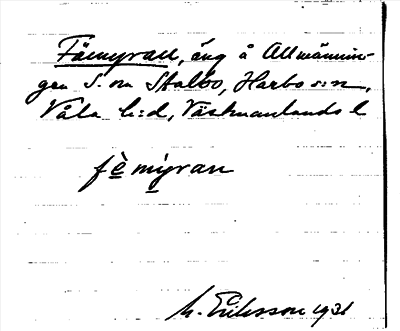 Fämyran, äng å Allmännin-
gen S. om Stalbo, Harbo sn,
Våla h:d, Västmanlands l
fè myran
M. Eriksson 1931